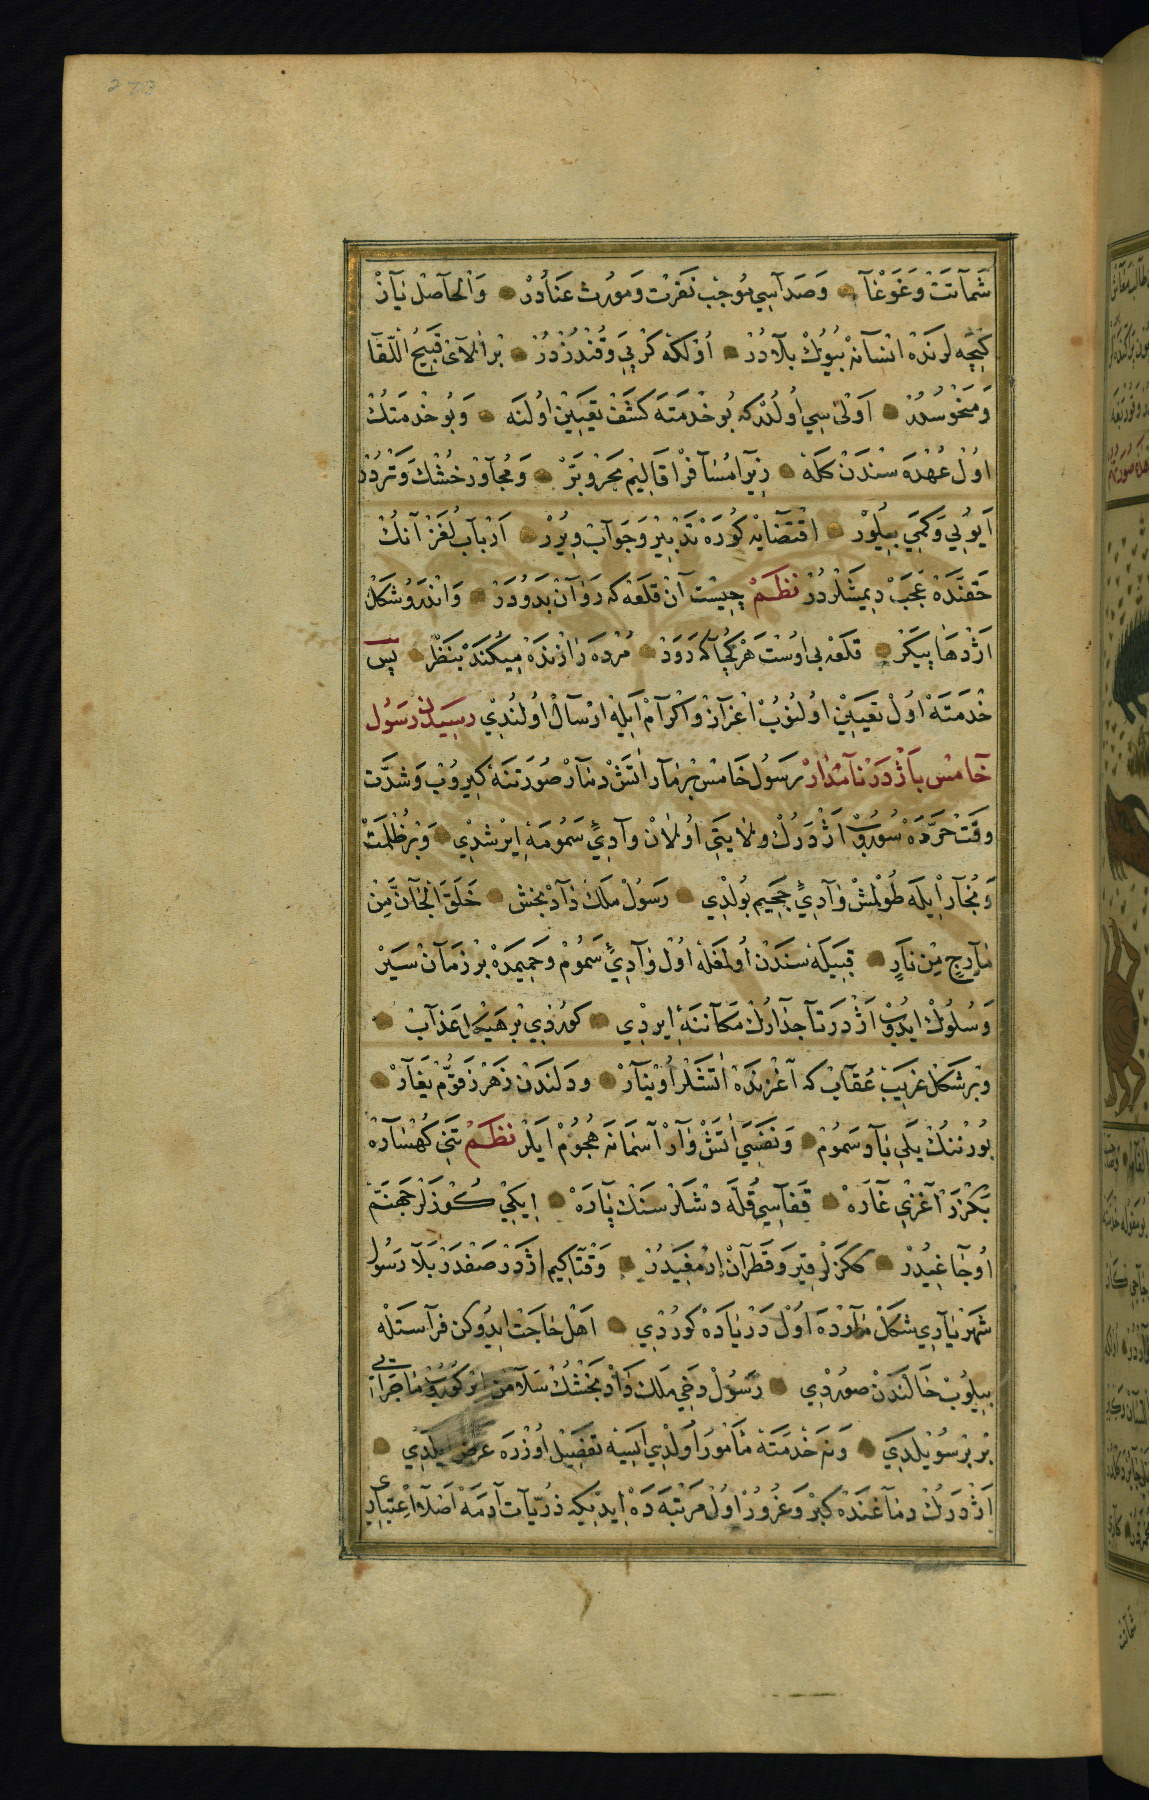 شماتت و غوغا وصداسی موجب نفرت ومورث عنادر والحاصل یاز
کیجه لرنده انسانه بیوك بلادر اولکه کزیی وقندزدر برالای قبیح اللقا
ومنحوسدر اولیٰسی اولدرکه بو خدمته کشف تعیین اولنه وبو خدمتك
اول عهده سندن کله زیرا مسافر اقالیم بحروبر ومجاور خشك وتردر
ایوبی وکمی بیلور اقتضایه کوره تدبیر وجواب ویرر ارباب لغز آنك
حقنده عجب دیمشلردر نظم چیست آن قلعه که روان بدودر واندرو شکل
اژدها پیکر قلعه بی اوست هرکجا که رود مرده را زنده میکند بنظر پس
خدمته اول تعیین اولنوب اعزاز واکرام ایله ارسال اولندی رسیدن رسول
خامس باژدر نامدار رسول خامس بزمار اتش دمار صورتنه کیروب وشدت
وقت حرده سوروب اژدرك ولایتی اولان وادیٔ سمومه ایرشدی وبر ظلمت
وبخار ایله طولمش وادیٔ جحیم بولدی رسول ملك داد بخش خلق الجان من
مارج من نار قبیله سندن اولمغله اول وادیٔ سموم وحمیمده بر زمان سیر
وسلوك ایدوب اژدر تاجدارك مکاننه ایردی کوردی بر هیکل عذاب
وبر شکل غریب عقاب که آغزنده اتشلر اوینار ودلندن زهر زقوم یغار
بورننك یلی باد سموم ونفسی اتش وار آسمانه هجوم ایلر نظم تنی کهساره
بکزر آغزی غاره قفاسی قله دشلر سنك پاره ایکی کوزلر جهنم
اوجاغیدر کمکزلر قیر وقطران ارمغیدر وقتاکیم اژدر صفدر بلا رسول
شهریاری شکل مارده اول دریاده کوردی اهل حاجت ایدوکن فراستله
بیلوب حالندن صوردی رسول دخی ملك داد بخشك سلامن کوروب ماجرایی
بر بر سویلدی ونه خدمته مامور اولدی ایسه تفصیل اوزره عرض ایلدی
اژدرك دماغنده کبر وغرور اول مرتبه ده ایدیکه ذریات آدمه اصلا اعتباری